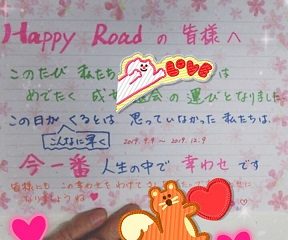 Happy Road の 皆様へ
このたび 私たち LOVE は
めでたく 成 退会 の 運びとなりました
この日が くるとは 思っていなかった 私たちは、
こんなに早く 2019.9.9 〜 2019.12.9
今一番 人生の中で 幸わせ です
皆様にも この幸わせを わけて
なりましょうね